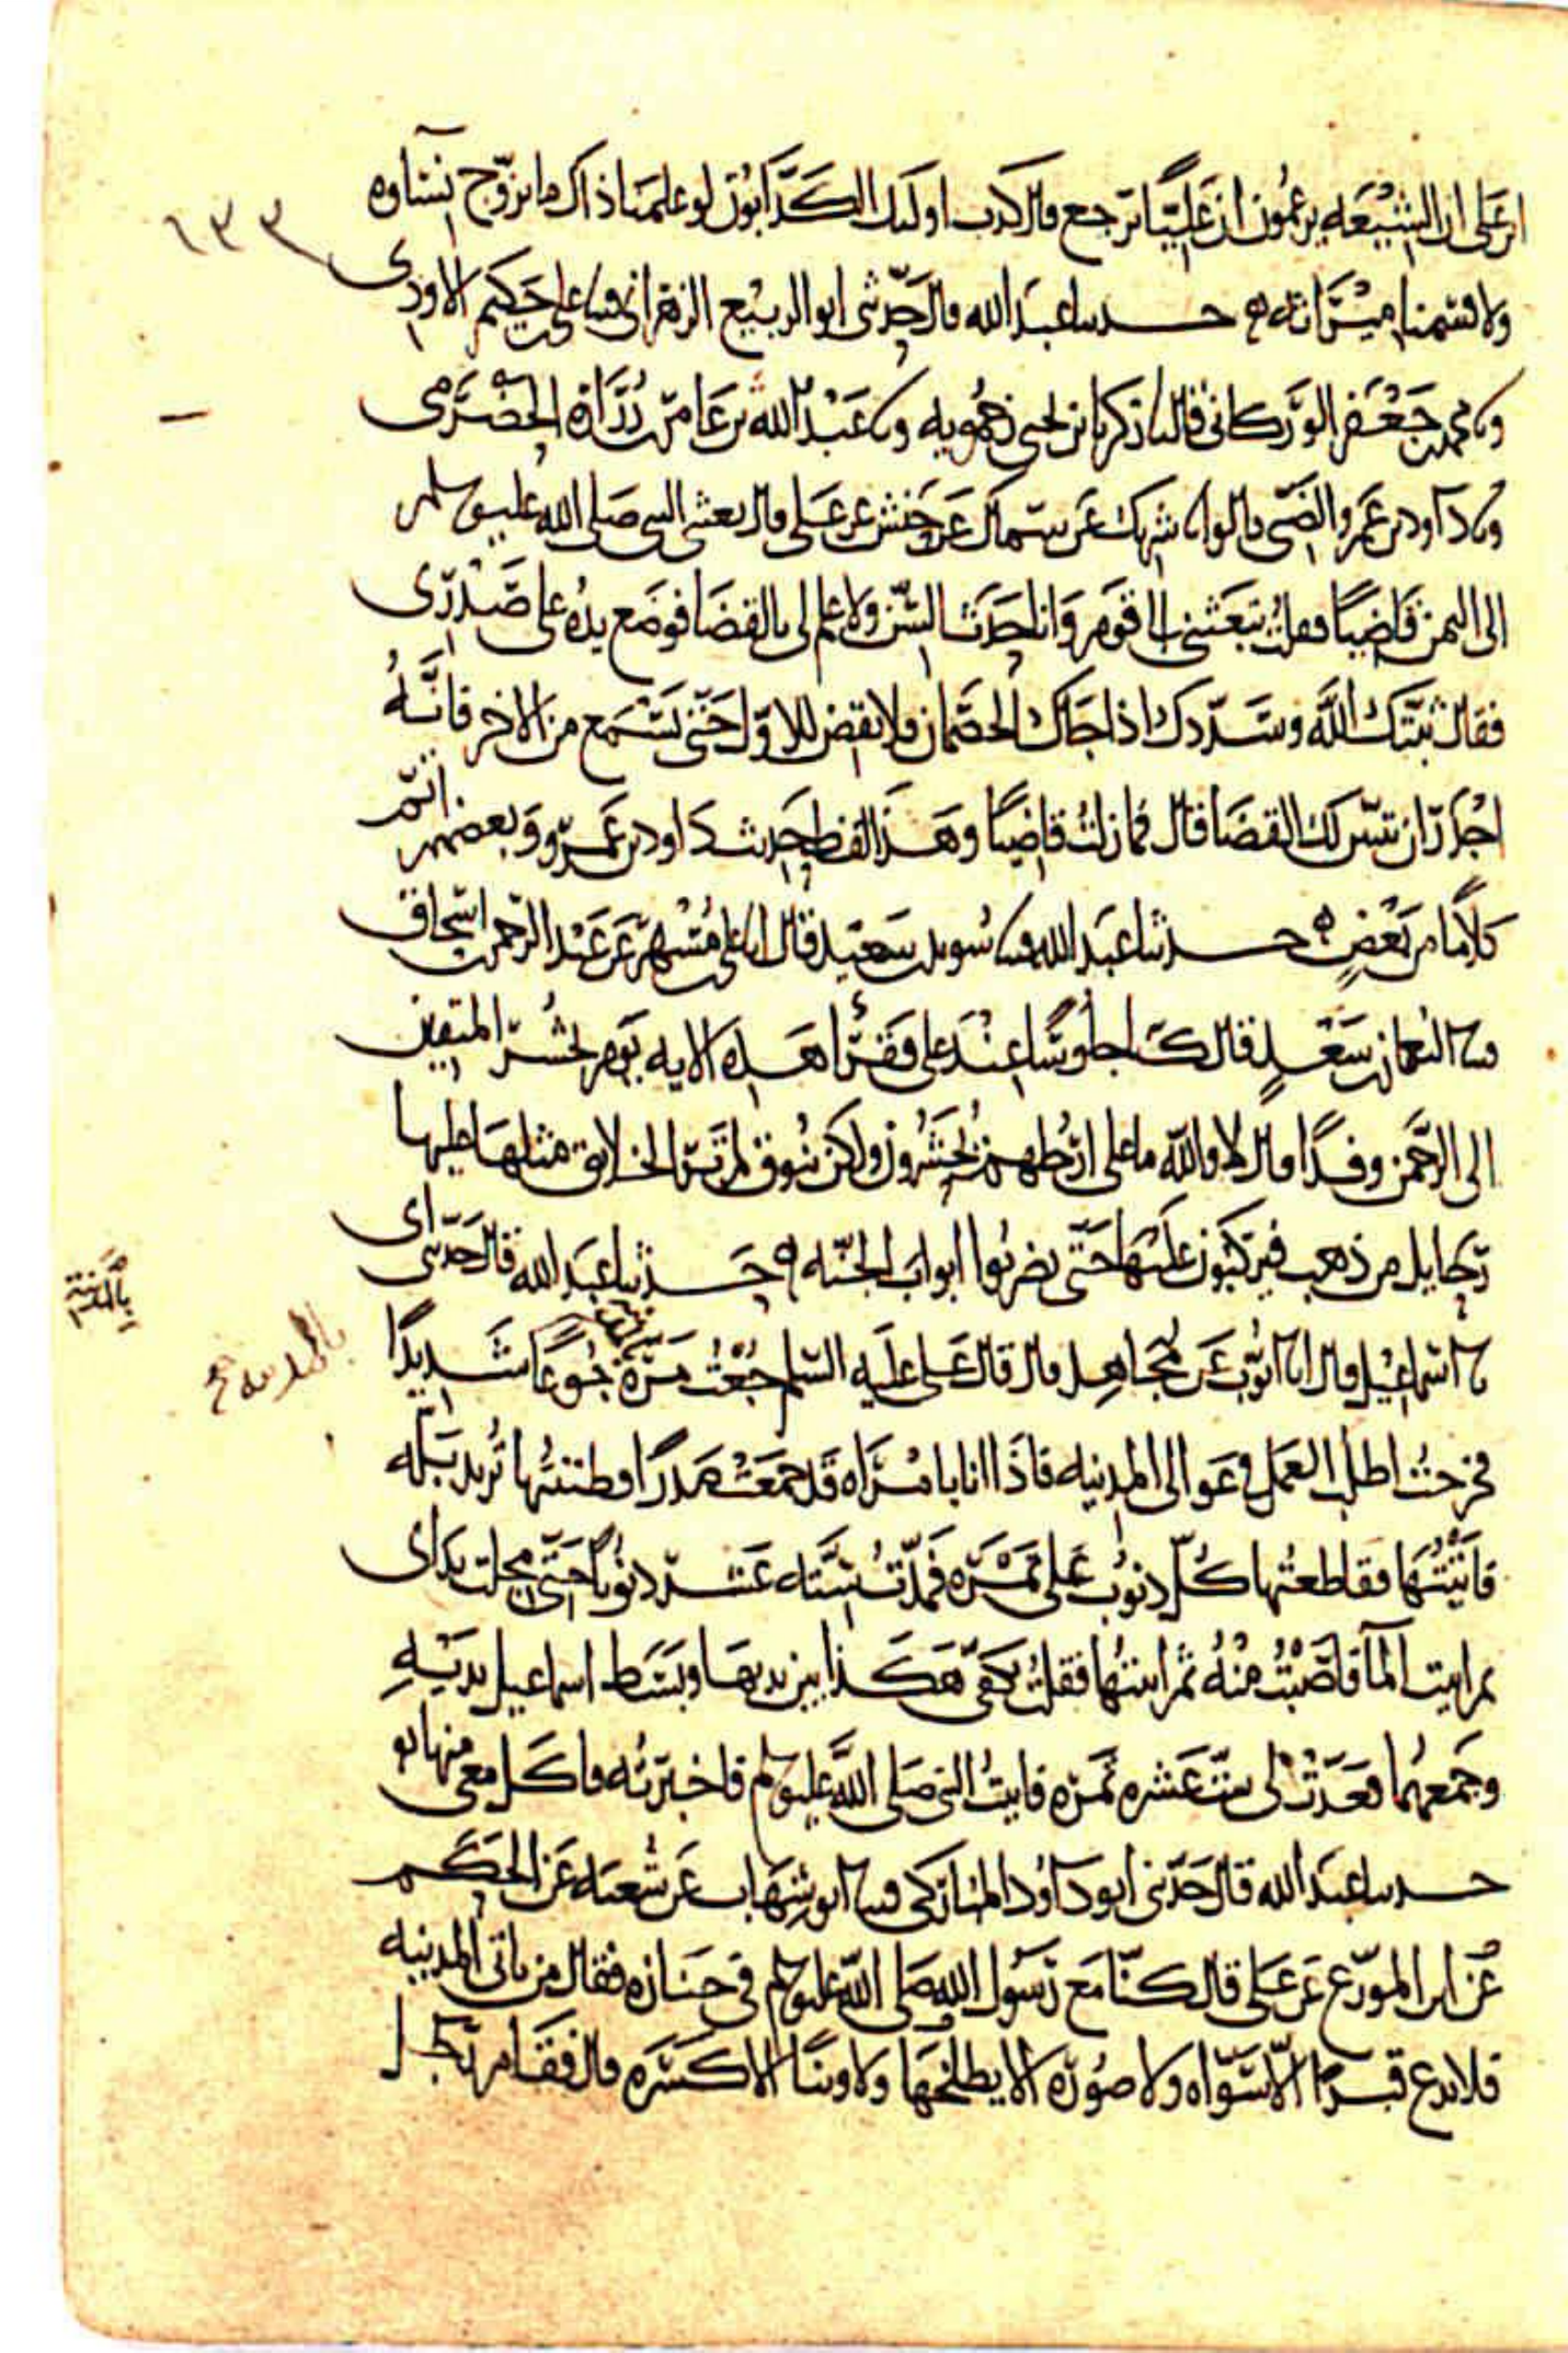 ابن علي ان الشيعة يزعمون ان عليا يرجع قال كذب اولئك الكذابون لو علمنا ذاك ما تزوج نساوه
ولا قسمنا ميراثه حدثنا عبد الله قال حدثني ابو الربيع الزهراني وثنا علي بن حكيم الاودي
وثنا محمد بن جعفر الوركاني وثنا زكريا بن يحيى زحمويه وثنا عبد الله بن عامر بن زرارة الحضرمي
وثنا داود بن عمرو الضبي قالوا ثنا شريك عن سماك عن حنش عن علي قال بعثني النبي صلى الله عليه وسلم
الى اليمن قاضيا فقلت تبعثني الى قوم وانا حدث السن ولا علم لي بالقضا فوضع يده على صدري
فقال ثبتك الله وسددك اذا جاك الخصمان فلا تقض للاول حتى تسمع من الاخر فانه
اجدر ان يتبين لك القضا قال فما زلت قاضيا وهذا لفظ حديث داود بن عمرو وبعضهم اتم
كلاما من بعض حدثنا عبد الله وثنا سويد بن سعيد قال انا علي بن مسهر عن عبد الرحمن بن اسحاق
وثنا النعمان بن سعد قال كنا جلوسا عند علي فقرا هذه الايه يوم نحشر المتقين
الى الرحمن وفدا قال لا والله ما على ارجلهم يحشرون ولكن بنوق لم تر الخلايق مثلها عليها
رحايل من ذهب فيركبون عليها حتى يضربوا ابواب الجنه حدثنا عبد الله قال حدثني ابي
ثنا اسماعيل قال انا ايوب عن مجاهد قال قال علي عليه السلم جعت مرة جوعا شديدا
بالمدينة
بالمدينة صح
فخرجت اطلب العمل في عوالي المدينه فاذا انا بامراه قد جمعت مدرا فظننتها تريد بله
فاتيتها فقاطعتها كل ذنوب على تمره فمددت سته عشر ذنوبا حتى مجلت يداي
ثم اتيت الما فاصبت منه ثم اتيتها فقلت بكفي هكذا بين يديها وبسط اسماعيل يديه
وجمعهما فعدت لي ست عشره تمره فاتيت النبي صلى الله عليه وسلم فاخبرته فاكل معي منها
حدثنا عبد الله قال حدثني ابو داود المباركي وثنا ابو شهاب عن شعبه عن الحكم
عن ابي المورع عن علي قال كنا مع رسول الله صلى الله عليه وسلم في جنازه فقال من ياتي المدينه
فلا يدع قبرا الا سواه ولا صوره الا يطلخها ولا وثنا الا كسره قال فقام رجل